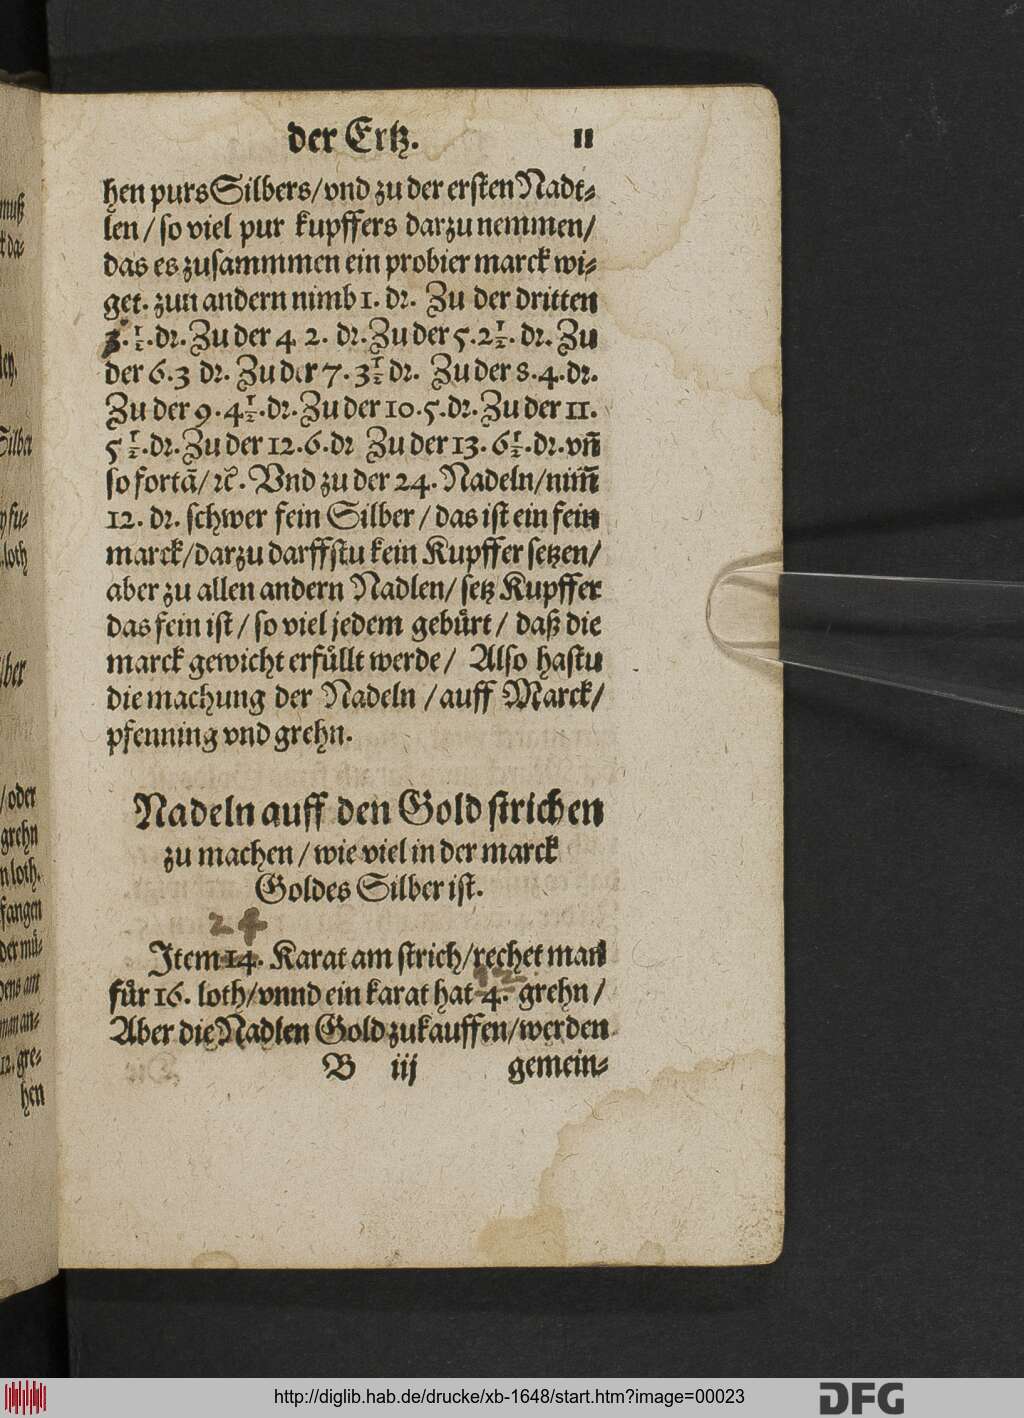 der Ertz. 11
hen purs Silbers/vnd zu der ersten Nadt⸗
len/ so viel pur kupffers darzu nemmen/
das es zusammmen ein probier marck wi⸗
get. zun andern nimb 1. dr. Zu der dritten
½. dr. Zu der 4 2. dr. Zu der 5. 2½. dr. Zu
der 6. 3 dr. Zu der 7. 3½ dr. Zu der 8. 4. dr.
Zu der 9. 4½. dr. Zu der 10. 5. dr. Zu der 11.
5½. dr. Zu der 12. 6. dr Zu der 13. 6½. dr. vn̄
so fortā/ ꝛc̄. Vnd zu der 24. Nadeln/nim̄
12. dr. schwer fein Silber/ das ist ein fein
marck/darzu darffstu kein Kupffer setzen/
aber zu allen andern Nadlen/ setz Kupffer
das fein ist/ so viel jedem gebuͤrt/ daß die
marck gewicht erfuͤllt werde/ Also hastu
die machung der Nadeln/auff Marck/
pfenning vnd grehn.
Nadeln auff den Gold strichen
zu machen/ wie viel in der marck
Goldes Silber ist.
24
Item 14. Karat am strich/rechet man
fuͤr 16. loth/vnnd ein karat hat 4. grehn/
12
Aber die Nadlen Gold zukauffen/werden
B iij gemein⸗
muß
k da⸗
ley.
Silber
loth
lber
/oder
grehn
n loth.
fangen
der muͤ⸗
dens am
man an⸗
12. gre⸗
hen
http://diglib.hab.de/drucke/xb-1648/start.htm?image=00023
DFG